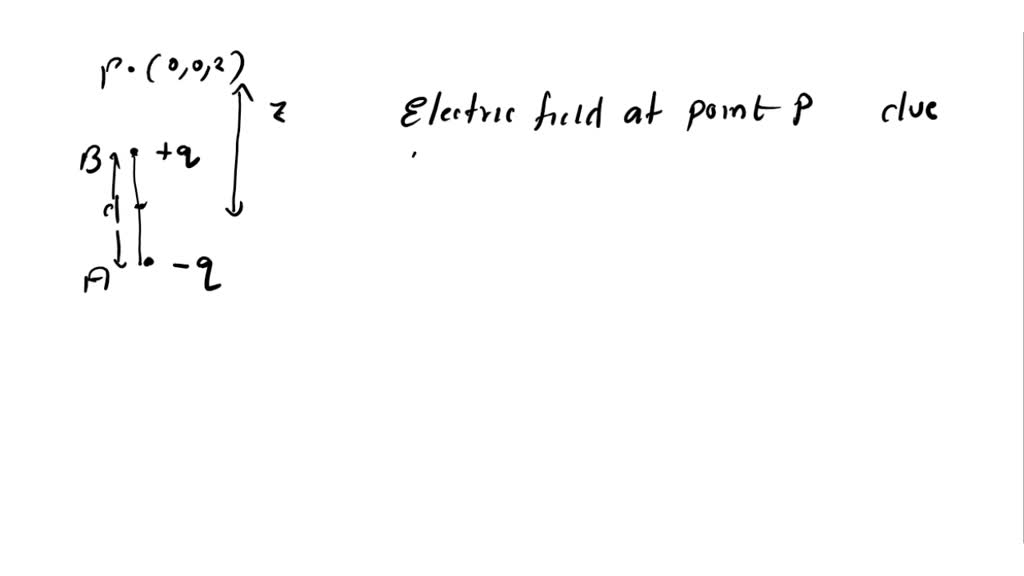 P. (0,0,z)
z
Electric field at point P due
B +q
d
A -q